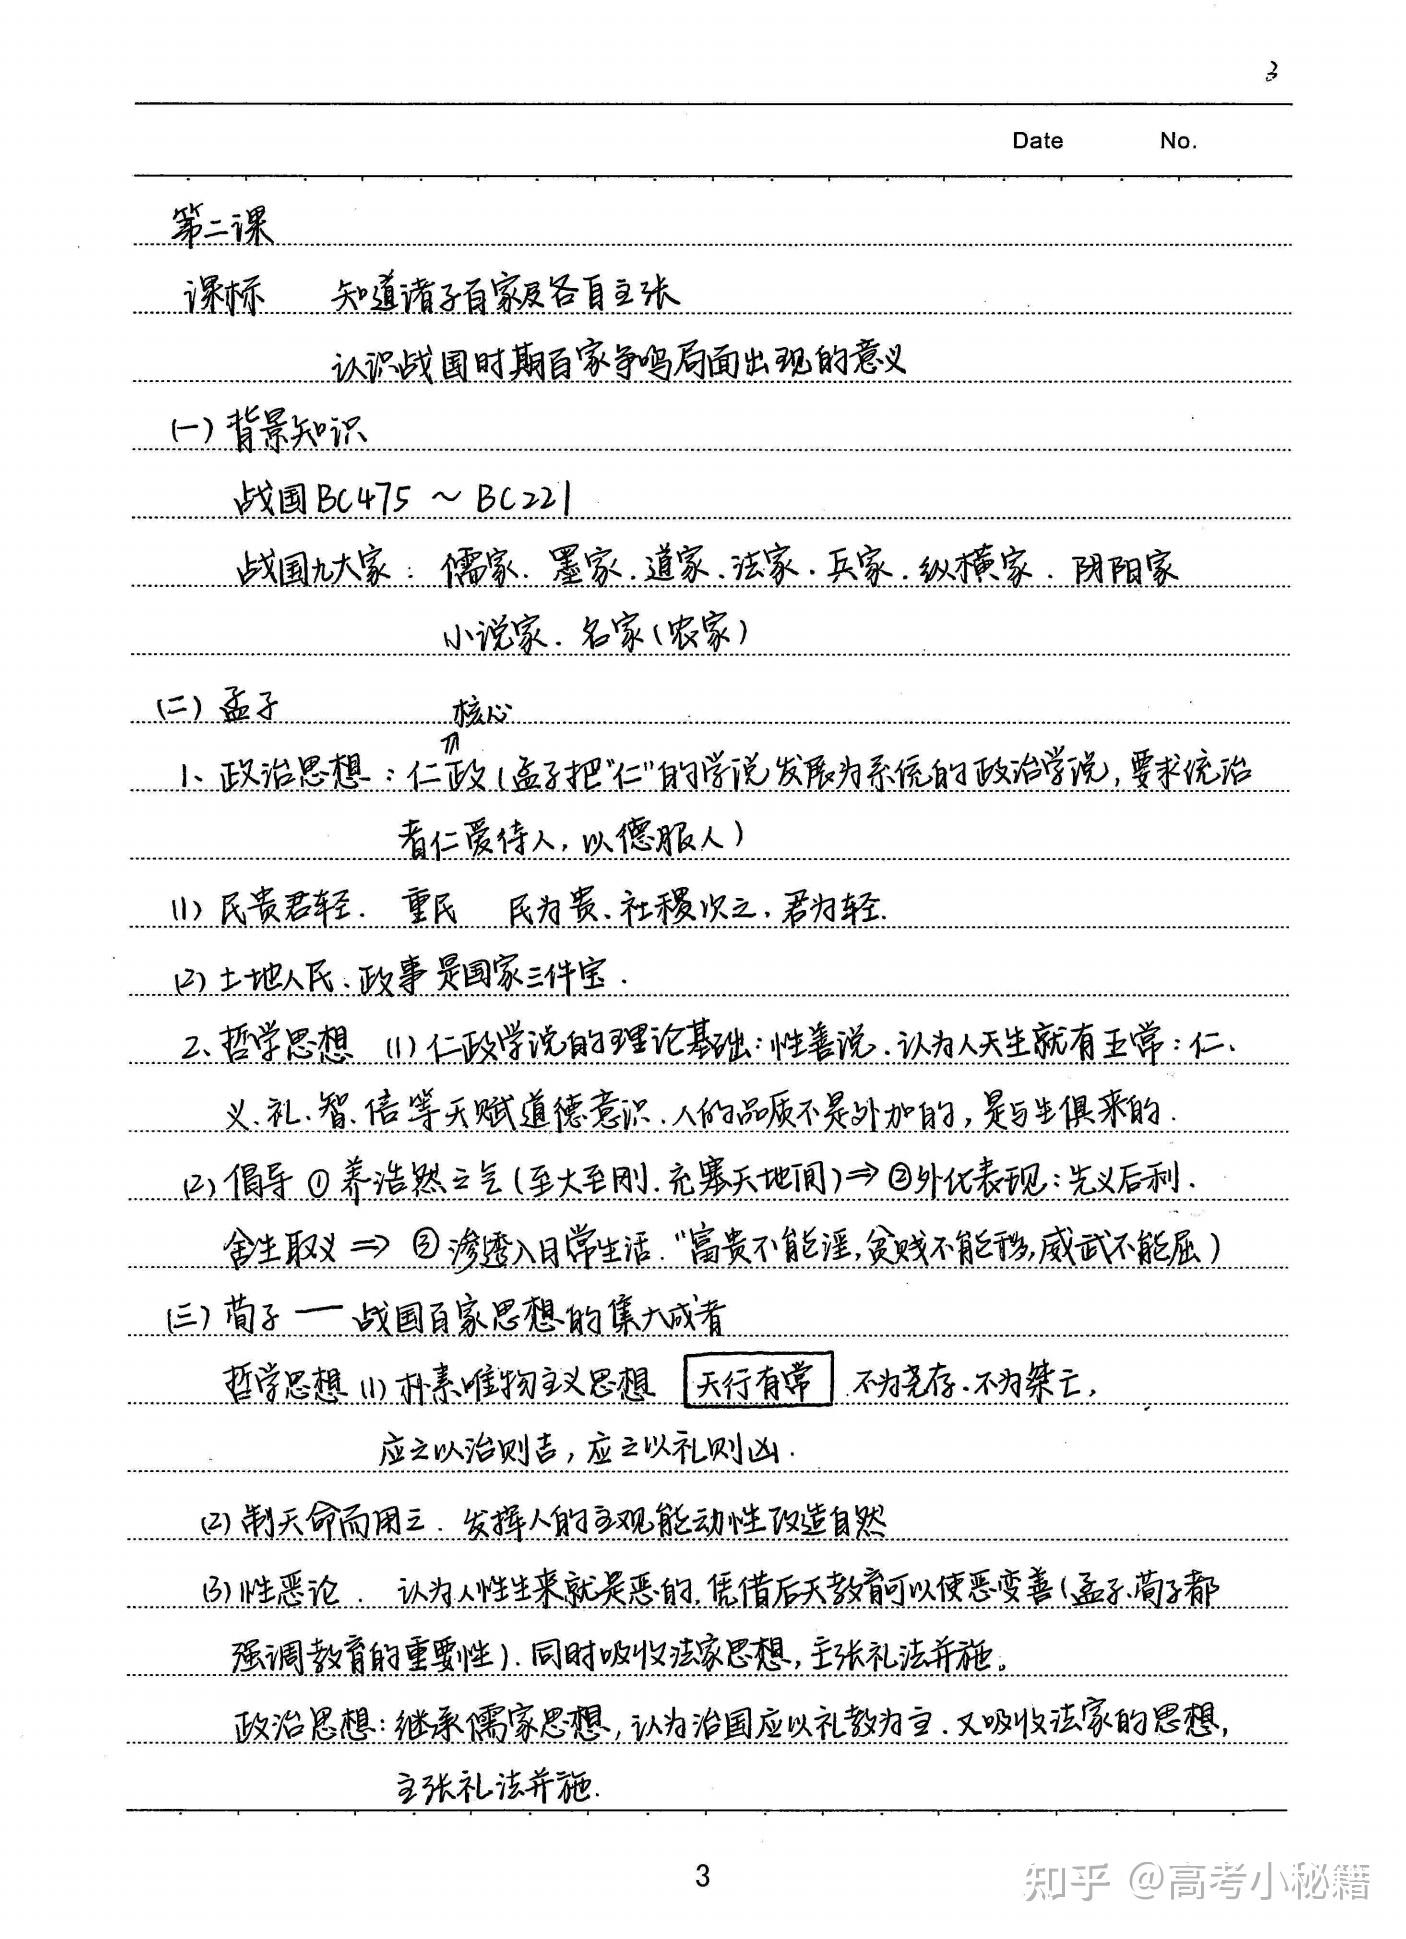 3
Date No.
第二课
课标 知道诸子百家及各自主张
认识战国时期百家争鸣局面出现的意义
(一) 背景知识
战国BC475 ~ BC221
战国九大家: 儒家. 墨家. 道家. 法家. 兵家. 纵横家. 阴阳家
小说家. 名家(农家)
(二) 孟子
核心
⇑
1、政治思想: 仁政(孟子把"仁"的学说发展为系统的政治学说, 要求统治
者仁爱待人, 以德服人)
(1) 民贵君轻. 重民 民为贵、社稷次之, 君为轻.
(2) 土地人民、政事是国家三件宝.
2、哲学思想 (1) 仁政学说的理论基础: 性善说. 认为人天生就有五常: 仁、
义、礼、智、信等天赋道德意识. 人的品质不是外加的, 是与生俱来的.
(2) 倡导 ① 养浩然之气(至大至刚. 充塞天地间) ⇒ ② 外化表现: 先义后利.
舍生取义 ⇒ ③ 渗透入日常生活. "富贵不能淫, 贫贱不能移, 威武不能屈)
(三) 荀子 — 战国百家思想的集大成者
哲学思想 (1) 朴素唯物主义思想 天行有常 不为尧存. 不为桀亡,
应之以治则吉, 应之以礼则凶.
(2) 制天命而用之. 发挥人的主观能动性改造自然
(3) 性恶论. 认为人性生来就是恶的, 凭借后天教育可以使恶变善(孟子、荀子都
强调教育的重要性). 同时吸收法家思想, 主张礼法并施。
政治思想: 继承儒家思想, 认为治国应以礼教为主. 又吸收法家的思想,
主张礼法并施.
3
知乎 @高考小秘籍